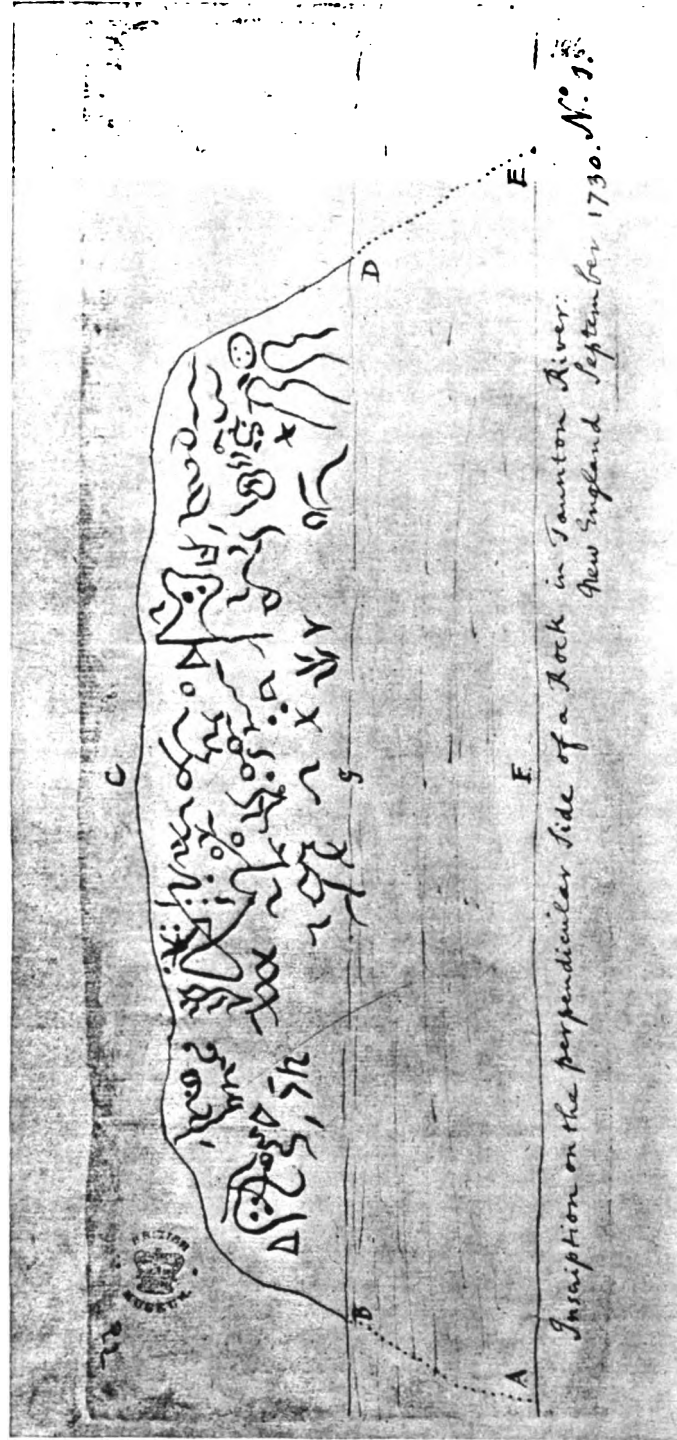 BRITISH
MUSEUM
C
B
G
D
A
F
E
Inscription on the perpendicular Side of a Rock in Taunton River.
New England September 1730. N.º 1.